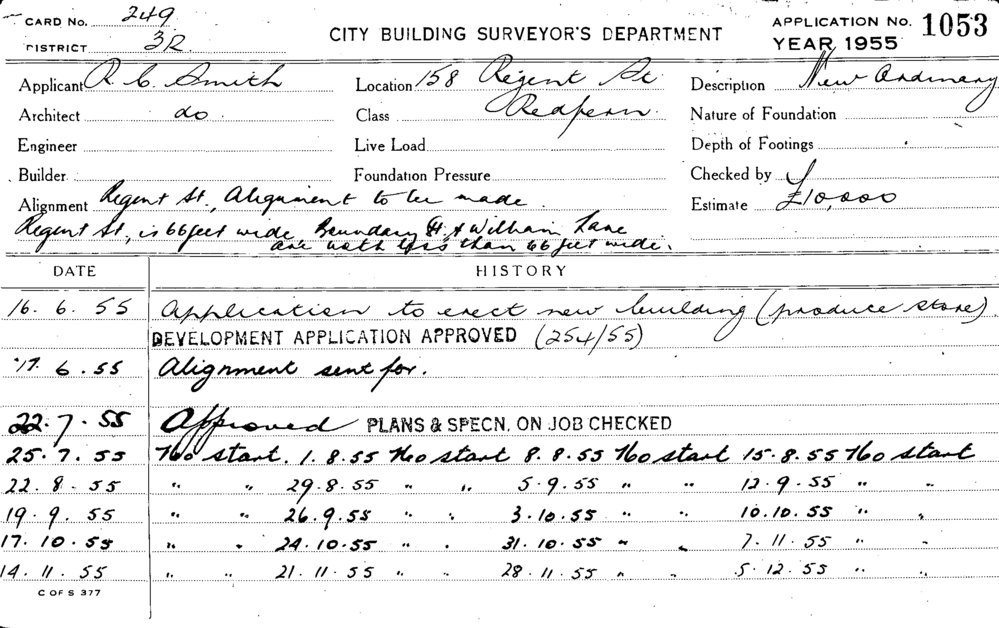 CARD No. 249
DISTRICT 3R
CITY BUILDING SURVEYOR'S DEPARTMENT
APPLICATION No. 1053
YEAR 1955
Applicant R. C. Smith Location 158 Regent St Description New Ordinary
Architect do Class Redfern Nature of Foundation
Engineer Live Load Depth of Footings
Builder Foundation Pressure Checked by
Alignment Regent St., Alignment to be made. Estimate £10,000
Regent St., is 66 feet wide, Boundary St. & William Lane
are both less than 66 feet wide.
DATE HISTORY
16. 6. 55 Application to erect new building (produce store)
DEVELOPMENT APPLICATION APPROVED (254/55)
17. 6. 55 Alignment sent for.
22. 7. 55 Approved PLANS & SPECN. ON JOB CHECKED
25. 7. 55 No start. 1. 8. 55 No start 8. 8. 55 No start 15. 8. 55 No start
22. 8. 55 " " 29. 8. 55 " " 5. 9. 55 " " 12. 9. 55 " "
19. 9. 55 " " 26. 9. 55 " " 3. 10. 55 " " 10. 10. 55 " "
17. 10. 55 " " 24. 10. 55 " " 31. 10. 55 " " 7. 11. 55 " "
14. 11. 55 " " 21. 11. 55 " " 28. 11. 55 " " 5. 12. 55 " "
C OF S 377